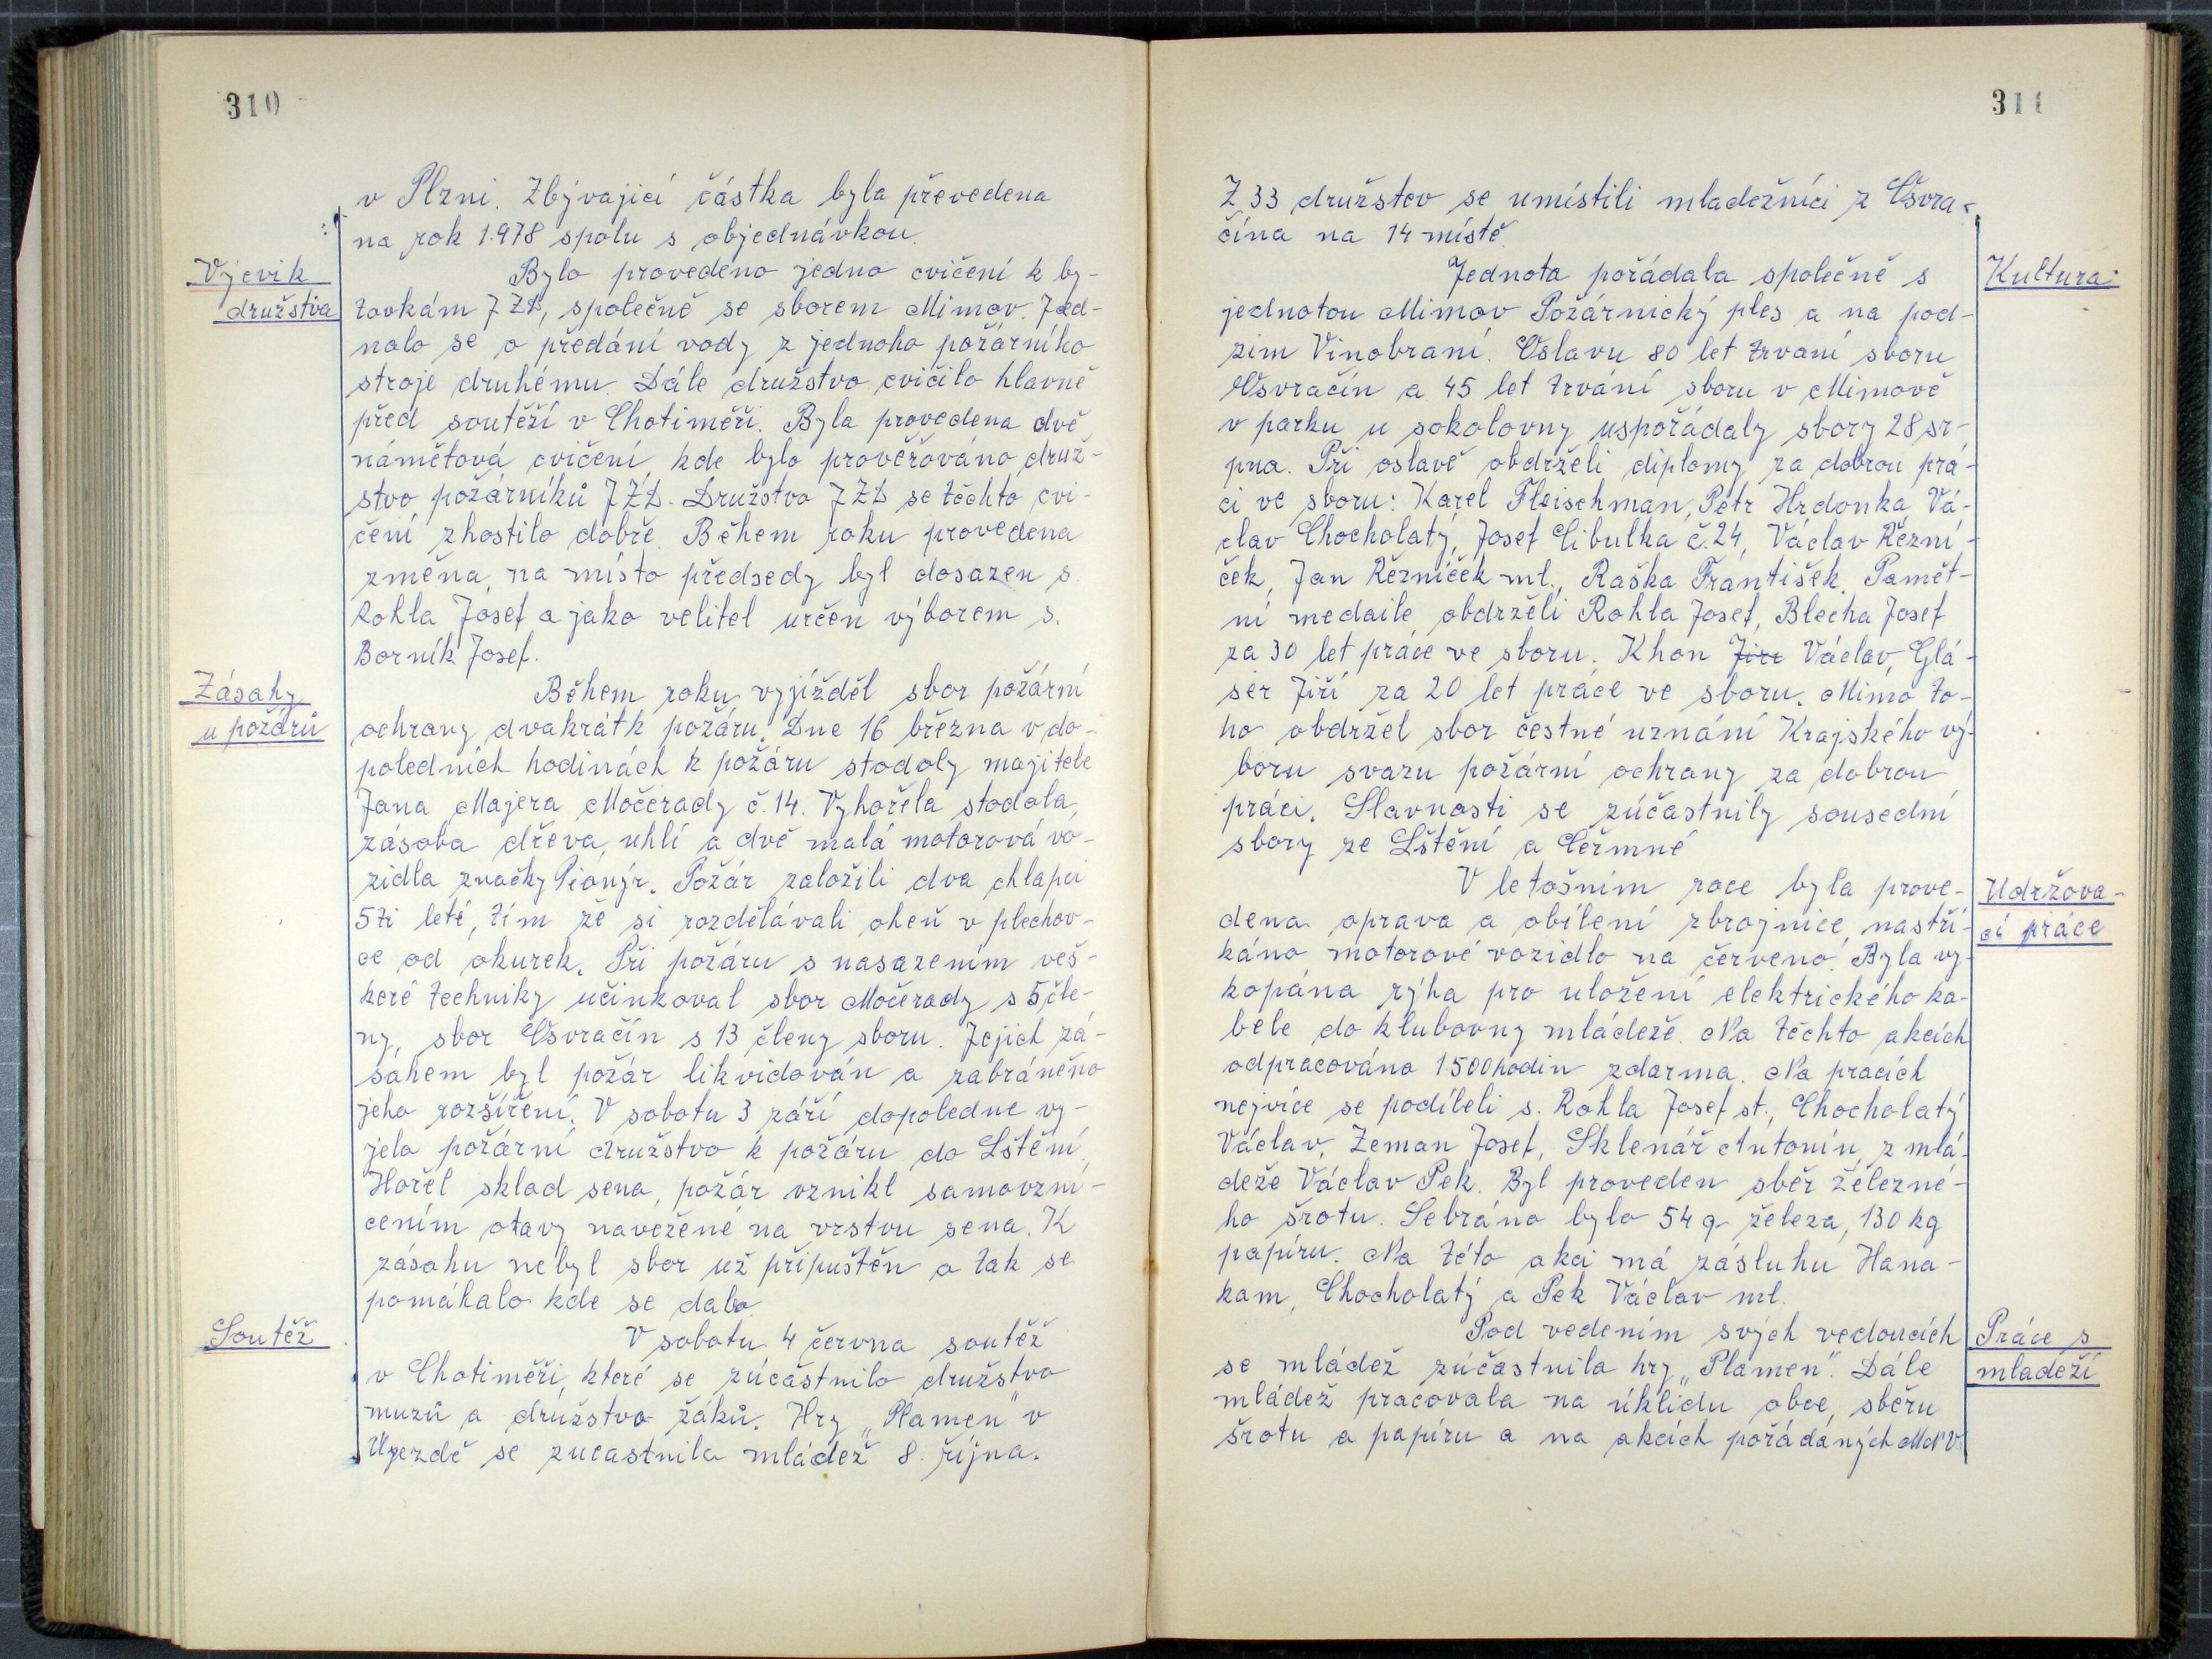 310
v Plzni. Zbývající částka byla převedena
na rok 1.978 spolu s objednávkou.
Výcvik
družstva
Bylo provedeno jedno cvičení k by-
tovkám JZD, společně se sborem Mimov. Jed-
nalo se o předání vody z jednoho požárního
stroje druhému. Dále družstvo cvičilo hlavně
před soutěží v Chotiměři. Byla provedena dvě
námětová cvičení, kde bylo prověřováno druž-
stvo požárníků JZD. Družstvo JZD se těchto cvi-
čení zhostilo dobře. Během roku provedena
změna, na místo předsedy byl dosazen s.
Rohla Josef a jako velitel určen výborem s.
Borník Josef.
Zásahy
u požárů
Během roku vyjížděl sbor požární
ochrany dvakrát k požáru. Dne 16 března v do-
poledních hodinách k požáru stodoly majitele
Jana Majera Močerady č. 14. Vyhořela stodola,
zásoba dřeva, uhlí a dvě malá motorová vo-
zidla značky Pionýr. Požár založili dva chlapci
5ti letí, tím že si rozdělávali oheň v plechov-
ce od okurek. Při požáru s nasazením veš-
keré techniky účinkoval sbor Močerady s 5 čle-
ny, sbor Osvračín s 13 členy sboru. Jejich zá-
sahem byl požár likvidován a zabráněno
jeho rozšíření. V sobotu 3 září dopoledne vy-
jelo požární družstvo k požáru do Lštění,
Hořel sklad sena, požár vznikl samovzní-
cením otavy navežené na vrstvu sena. K
zásahu nebyl sbor už připuštěn a tak se
pomáhalo kde se dalo
Soutěž
V sobotu 4 června soutěž
v Chotiměři, které se zúčastnilo družstvo
mužů a družstvo žáků. Hry „Plamen" v
Újezdě se zúcastnila mládež 8. října.
311
Z 33 družstev se umístili mladežníci z Osvra-
čína na 14 místě.
Kultura
Jednota pořádala společně s
jednotou Mimov Požárnický ples a na pod-
zim Vinobraní. Oslavu 80 let trvání sboru
Osvračín a 45 let trvání sboru v Mimově
v parku u sokolovny uspořádaly sbory 28 sr-
pna. Při oslavě obdrželi diplomy za dobrou prá-
ci ve sboru: Karel Fleischman, Petr Hrdonka, Vá-
clav Chocholatý, Josef Cibulka č. 24, Václav Řezní-
ček, Jan Řezníček ml., Raška František. Pamět-
ní medaile obdrželi Rohla Josef, Blecha Josef
za 30 let práce ve sboru. Khon Jiří Václav, Glá-
ser Jiří za 20 let práce ve sboru. Mimo to-
ho obdržel sbor čestné uznání Krajského vý-
boru svazu požární ochrany za dobrou
práci. Slavnosti se zúčastnily sousední
sbory ze Lštění a Čermné
Udržova-
cí práce
V letošním roce byla prove-
dena oprava a obílení zbrojnice, nastří-
káno motorové vozidlo na červeno. Byla vy-
kopána rýha pro uložení elektrického ka-
bele do klubovny mládeže. Na těchto akcích
odpracováno 1.500 hodin zdarma. Na pracích
nejvíce se podíleli s. Rohla Josef st., Chocholatý
Václav, Zeman Josef, Sklenář Antonín, z mlá-
deže Václav Pek. Byl proveden sběr železné-
ho šrotu. Sebráno bylo 54 q železa, 130 kg
papíru. Na této akci má zásluhu Hana-
kam, Chocholatý a Pek Václav ml.
Práce s
mladeží
Pod vedením svých vedoucích
se mládež zúčastnila hry „Plamen". Dále
mládež pracovala na úklidu obce, sběru
šrotu a papíru a na akcích pořádaných MNV.